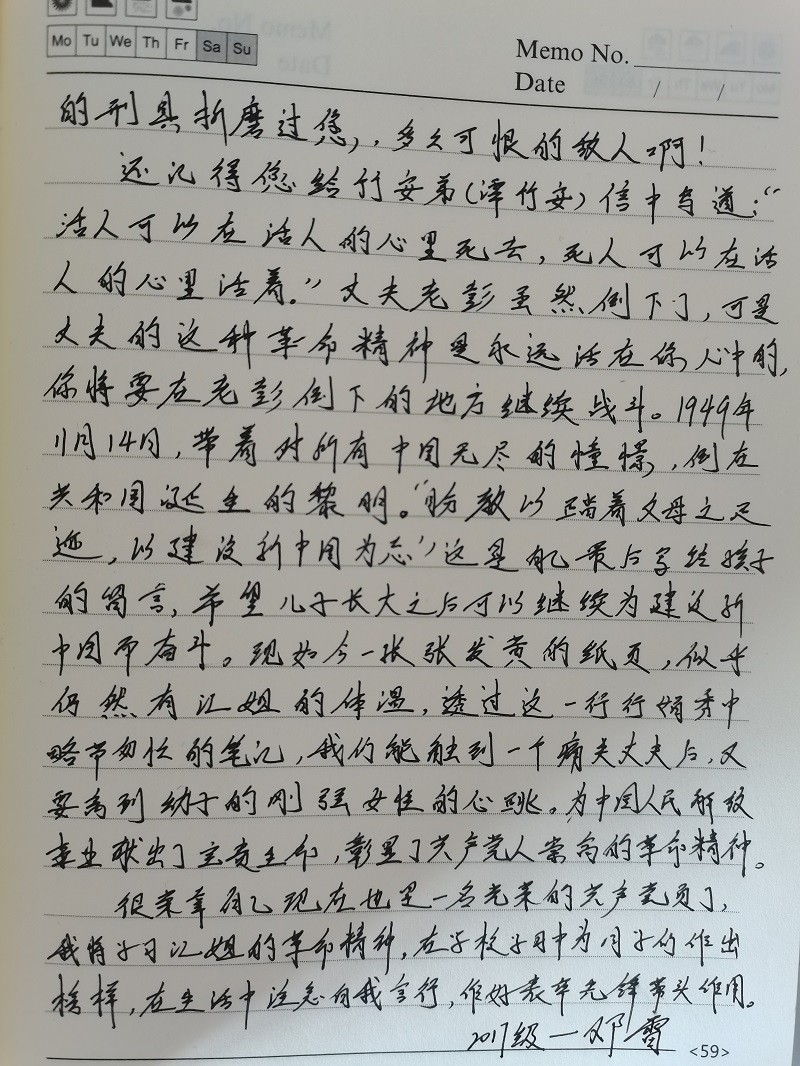 Mo Tu We Th Fr Sa Su
Memo No.
Date / /
的刑具折磨过您,多么可恨的敌人啊!
还记得您给竹安弟(谭竹安)信中写道:“
活人可以在活人的心里死去,死人可以在活
人的心里活着。”丈夫老彭虽然倒下了,可是
丈夫的这种革命精神是永远活在你心中的,
你将要在老彭倒下的地方继续战斗。1949年
11月14日,带着对所有中国无尽的憧憬,倒在
共和国诞生的黎明。“盼教以踏着父母之足
迹,以建设新中国为志”这是自己最后写给孩子
的留言,希望儿子长大之后可以继续为建设新
中国而奋斗。现如今一张张发黄的纸页,似乎
仍然有江姐的体温,透过这一行行娟秀中
略带匆忙的笔记,我们能触到一个痛失丈夫后,又
要离别幼子的刚强女性的心跳。为中国人民解放
事业献出了宝贵生命,彰显了共产党人崇高的革命精神。
很荣幸自己现在也是一名光荣的共产党员了,
我将学习江姐的革命精神,在学校学习中为同学们作出
榜样,在生活中注意自我言行,作好表率先锋带头作用。
2017级一邓雷
<59>